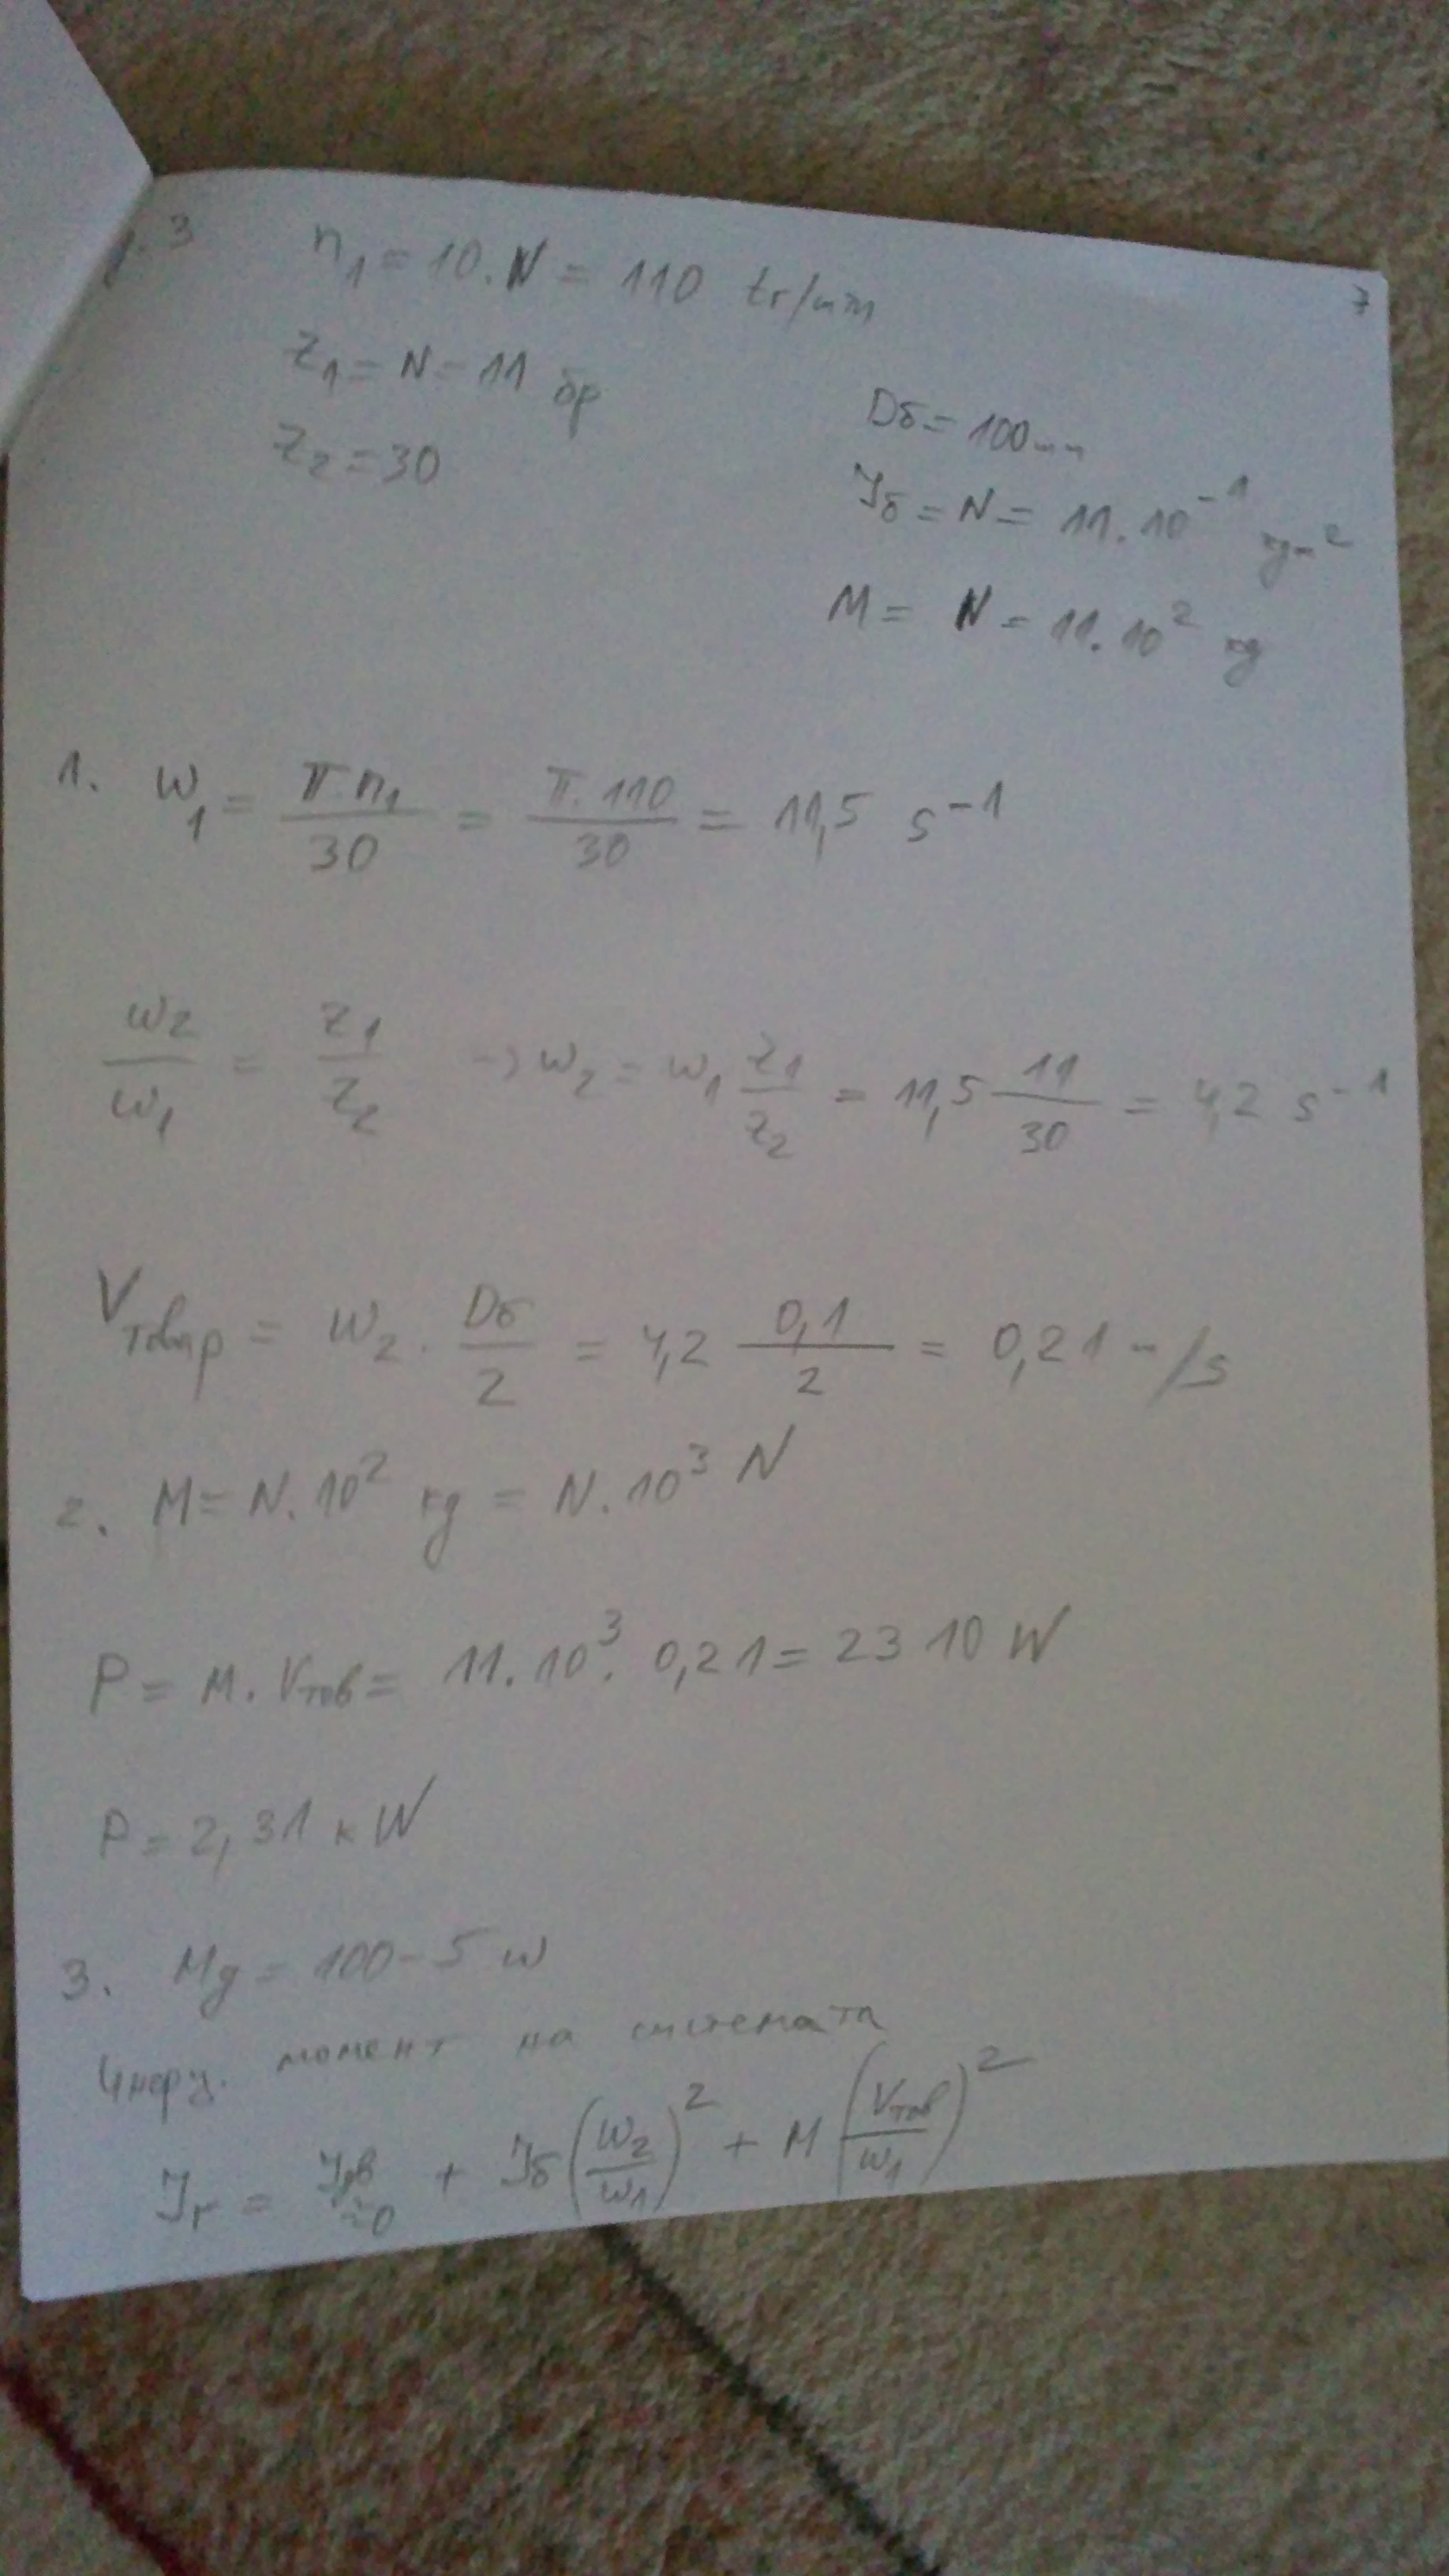 7
. 3 n₁ = 10.N = 110 tr/min
Z₁ = N = 11 бр
Z₂ = 30
Dб = 100mm
Jб = N = 11.10⁻¹ kgm²
M = N = 11.10² kg
1. ω₁ = π.n₁/30 = π.110/30 = 11,5 s⁻¹
ω₂/ω₁ = Z₁/Z₂ → ω₂ = ω₁ Z₁/Z₂ = 11,5 11/30 = 4,2 s⁻¹
Vтовар = ω₂ . Dб/2 = 4,2 0,1/2 = 0,21 m/s
2. M = N.10² kg = N.10³ N
P = M.Vтов = 11.10³. 0,21 = 2310 W
P = 2,31 kW
3. Mg = 100 - 5ω
Инерц. момент на системата
Jr = Jдв ≈0 + Jб (ω₂/ω₁)² + M (Vтов/ω₁)²